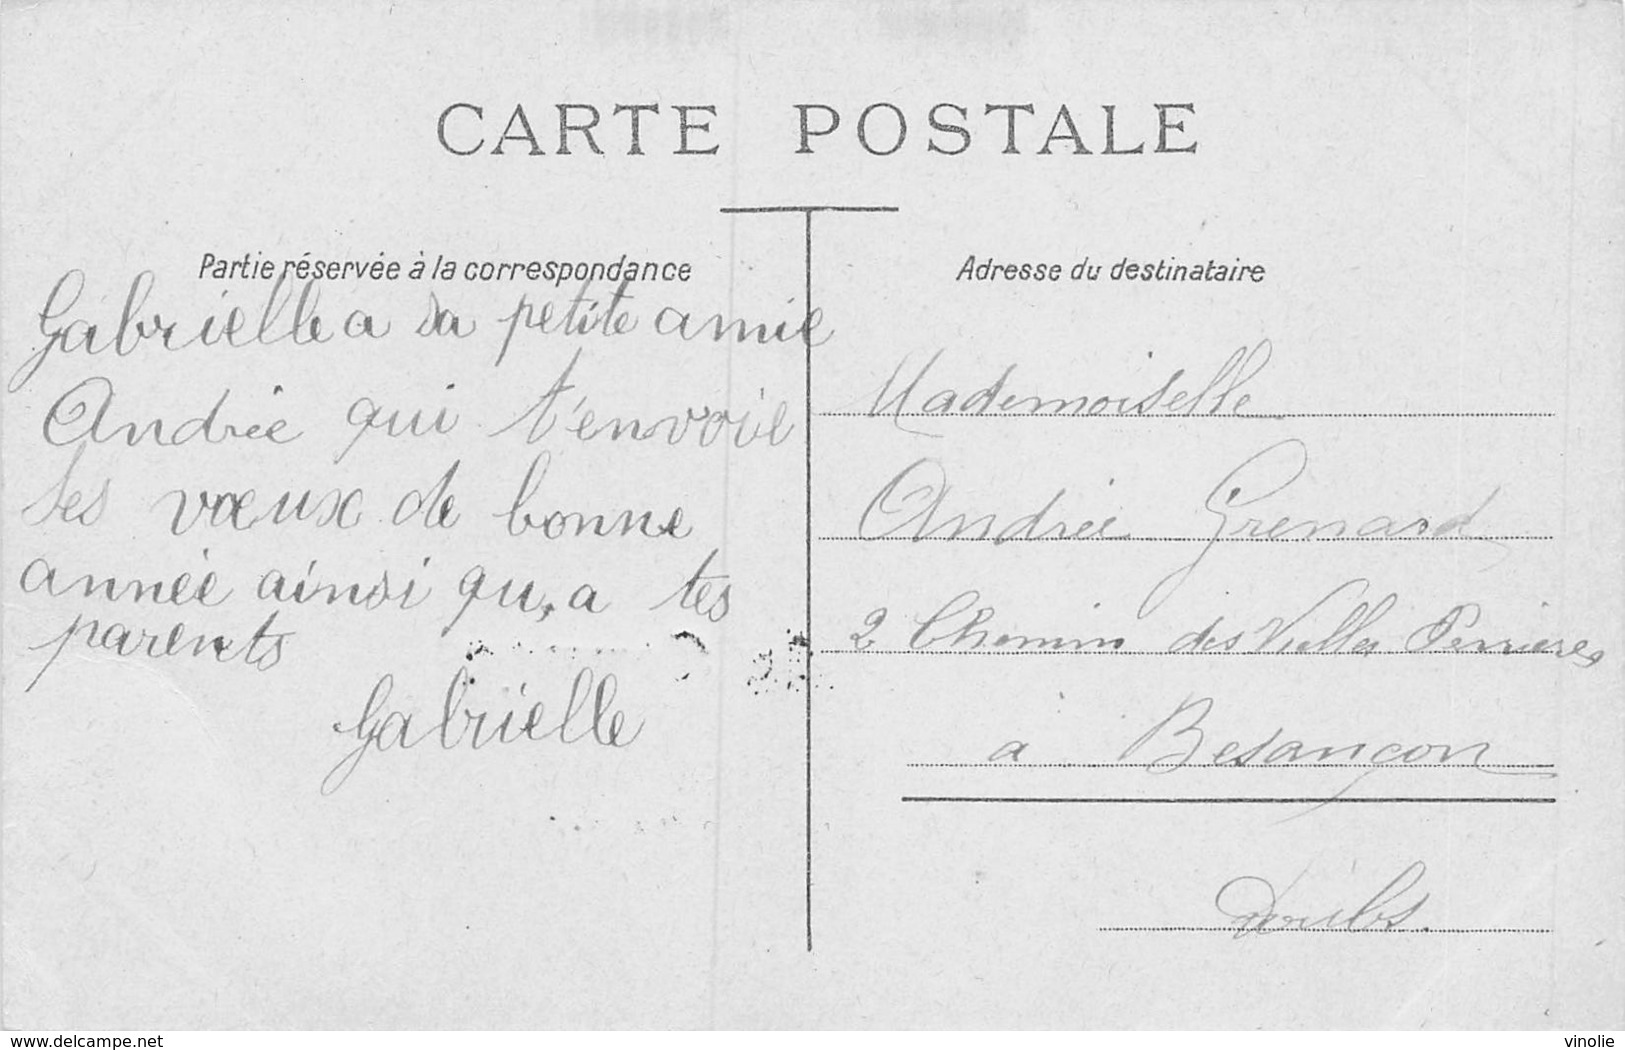 CARTE POSTALE
Partie réservée à la correspondance
Gabrielle a sa petite amie
Andrée qui t'envoie
ses vœux de bonne
année ainsi qu,a tes
parents
Gabrielle
Adresse du destinataire
Mademoiselle
Andrée Grenard
2 Chemin des Vielles Perrieres
a Besançon
Doubs.
www.delcampe.net
vinolie